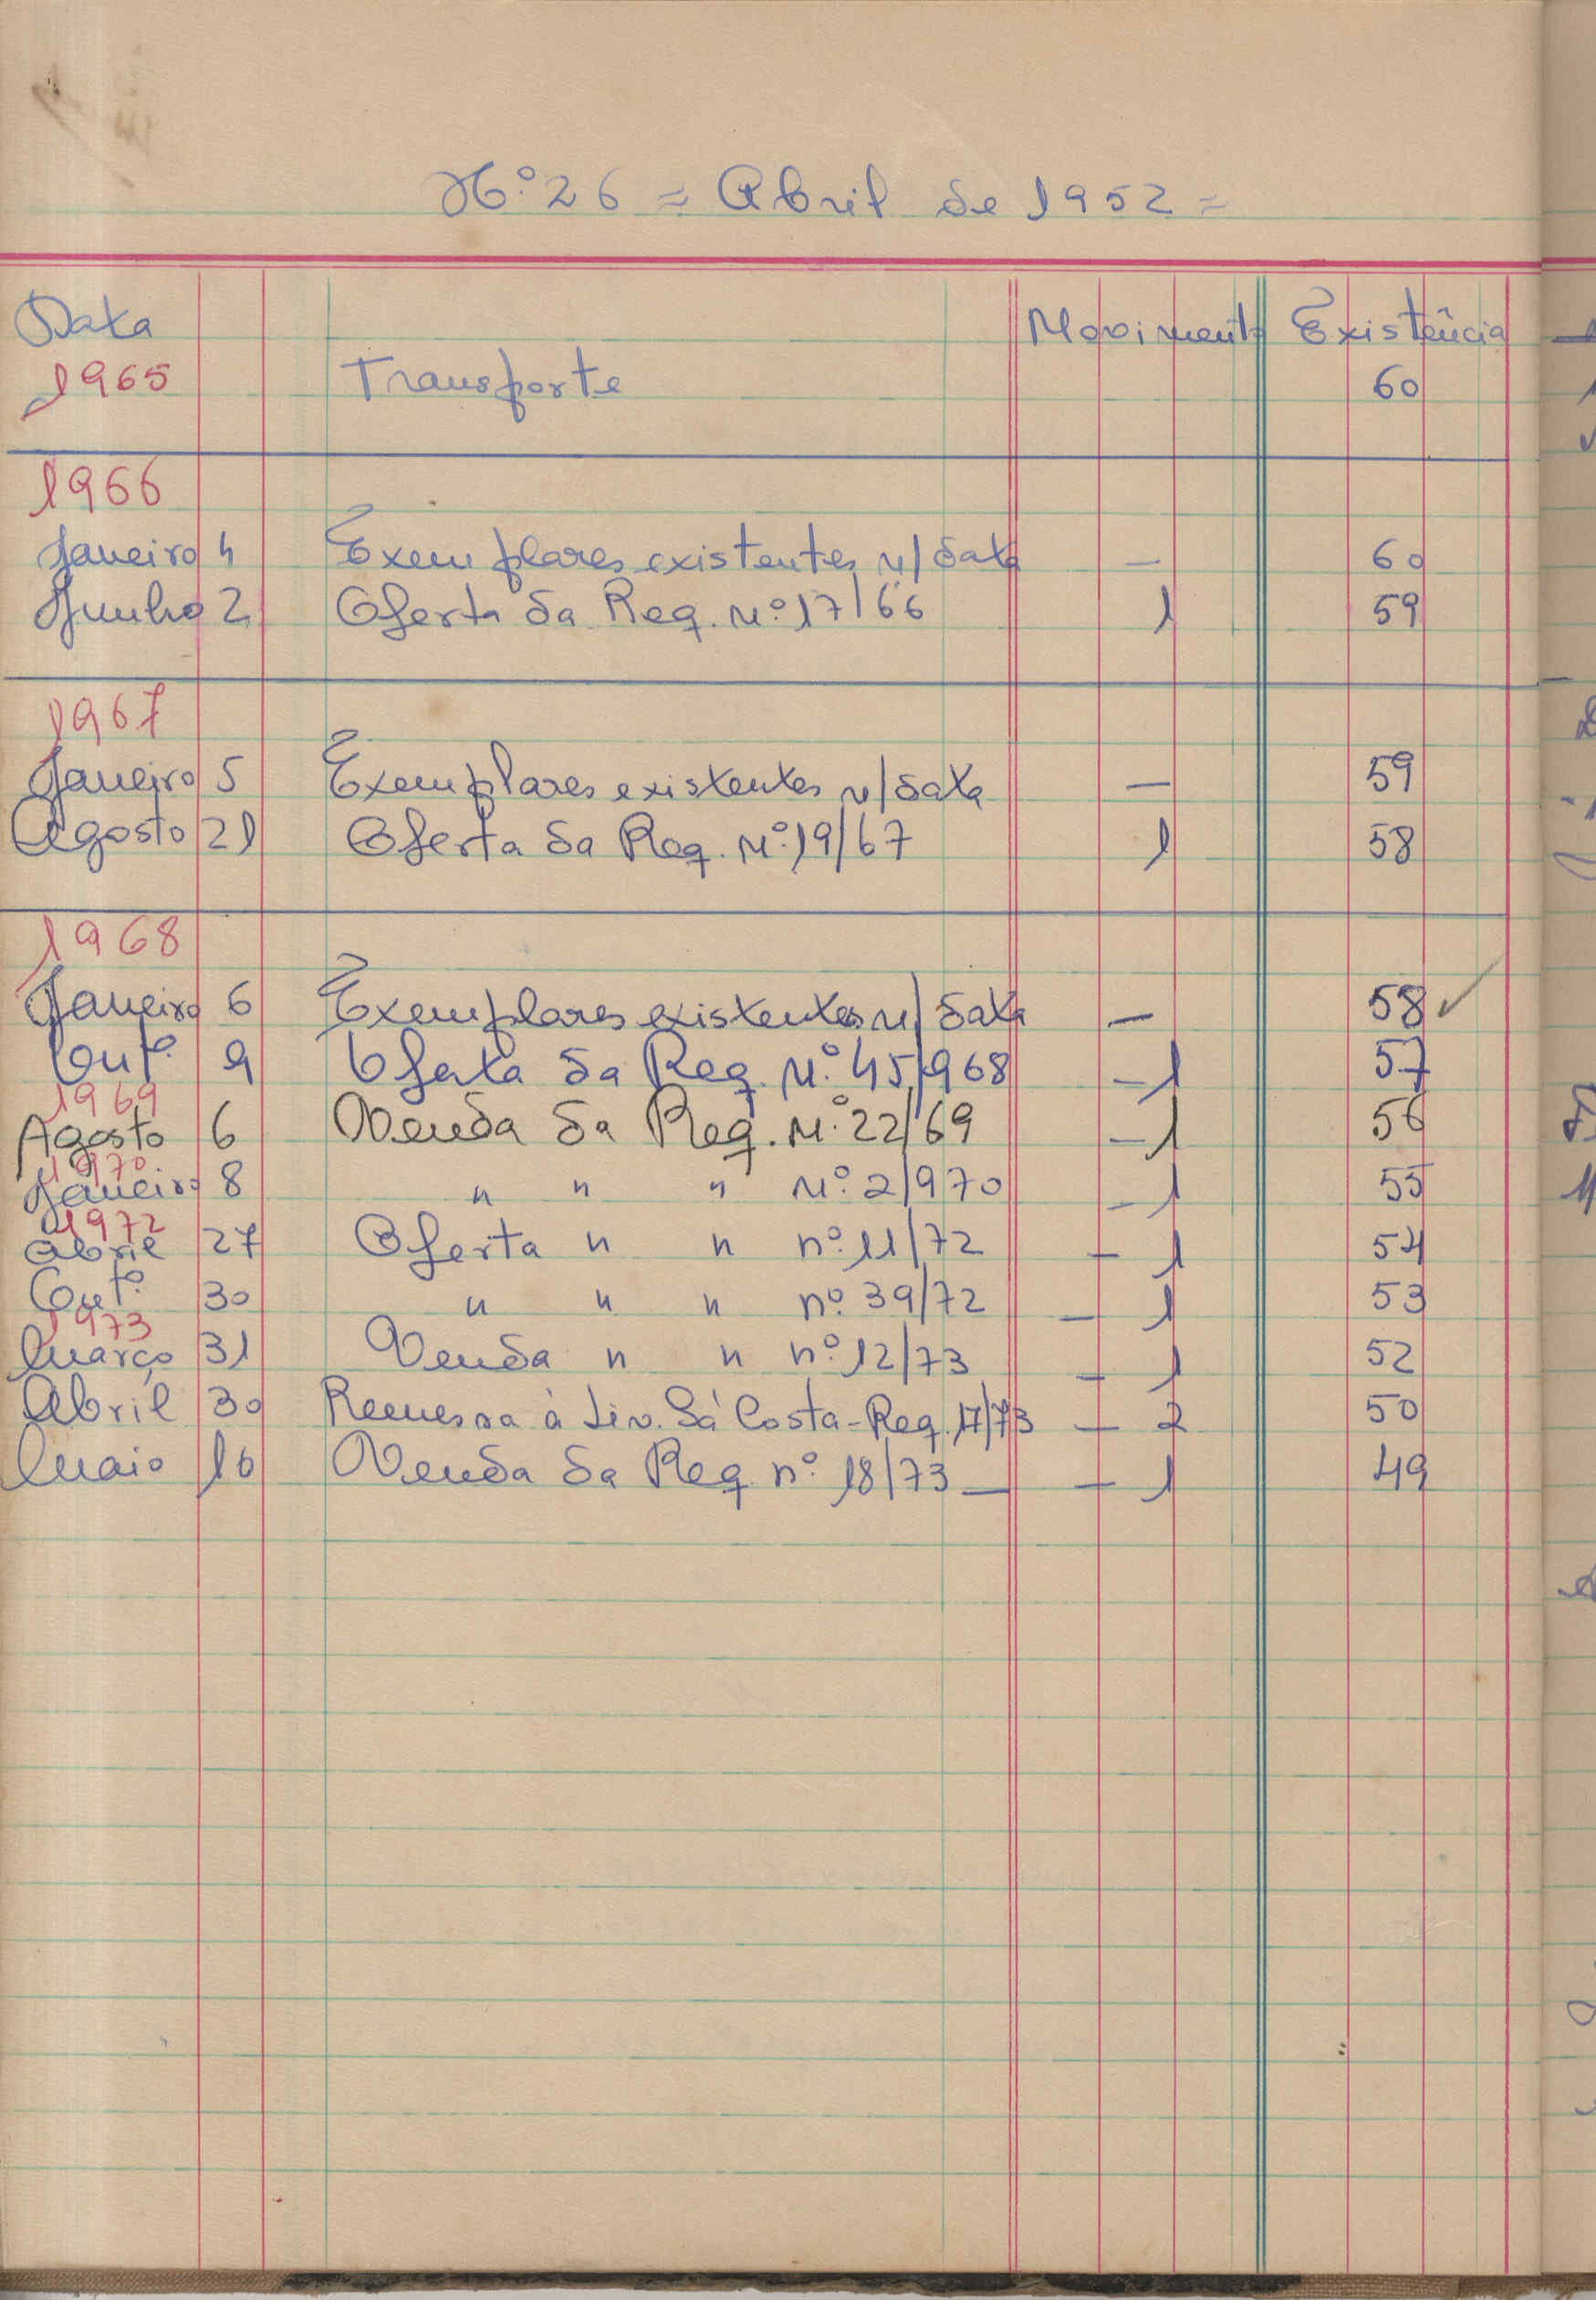 Nº 26 = Abril de 1952 =
Data Movimento Existência
1965 Transporte 60
1966
Janeiro 4 Exemplares existentes n/data — 60
Junho 2 Oferta da Req. Nº 17/66 1 59
1967
Janeiro 5 Exemplares existentes n/data — 59
Agosto 21 Oferta da Req. Nº 19/67 1 58
1968
Janeiro 6 Exemplares existentes n/data — 58 ✓
Outº 9 Oferta da Req. Nº 45/968 — 1 57
1969
Agosto 6 Venda da Req. Nº 22/69 — 1 56
1970
Janeiro 8 " " " Nº 2/970 — 1 55
1972
Abril 27 Oferta " " nº 11/72 — 1 54
Outº 30 " " " nº 39/72 — 1 53
1973
Março 31 Venda " " nº 12/73 — 1 52
Abril 30 Remessa à Liv. Sá Costa - Req. 17/73 — 2 50
Maio 16 Venda da Req nº 18/73 — — 1 49